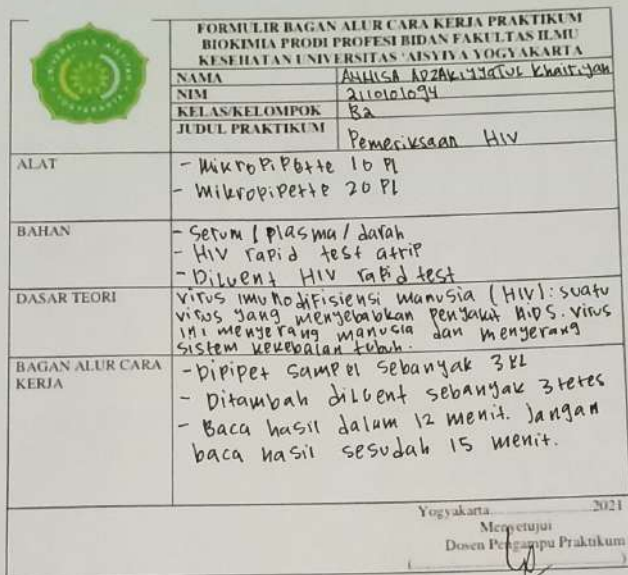 FORMULIR BAGAN ALUR CARA KERJA PRAKTIKUM
BIOKIMIA PRODI PROFESI BIDAN FAKULTAS ILMU
KESEHATAN UNIVERSITAS 'AISYIYA YOGYAKARTA
UNIVERSITAS 'AISYIYAH
YOGYAKARTA
NAMA ANNISA ADZAKIYYATUL Khairiyah
NIM 2110101094
KELAS/KELOMPOK B2
JUDUL PRAKTIKUM Pemeriksaan HIV
ALAT - Mikropipette 10 Pl
- Mikropipette 20 Pl
BAHAN - Serum / plasma / darah
- HIV rapid test atrip
- Diluent HIV rapid test
DASAR TEORI Virus imunodifisiensi manusia (HIV): suatu
virus yang menyebabkan penyakit AIDS. Virus
ini menyerang manusia dan menyerang
sistem kekebalan tubuh.
BAGAN ALUR CARA - Dipipet sampel sebanyak 3
KERJA - Ditambah diluent sebanyak 3 tetes
- Baca hasil dalam 12 menit. Jangan
baca hasil sesudah 15 menit.
Yogyakarta.................2021
Menyetujui
Dosen Pengampu Praktikum
( )